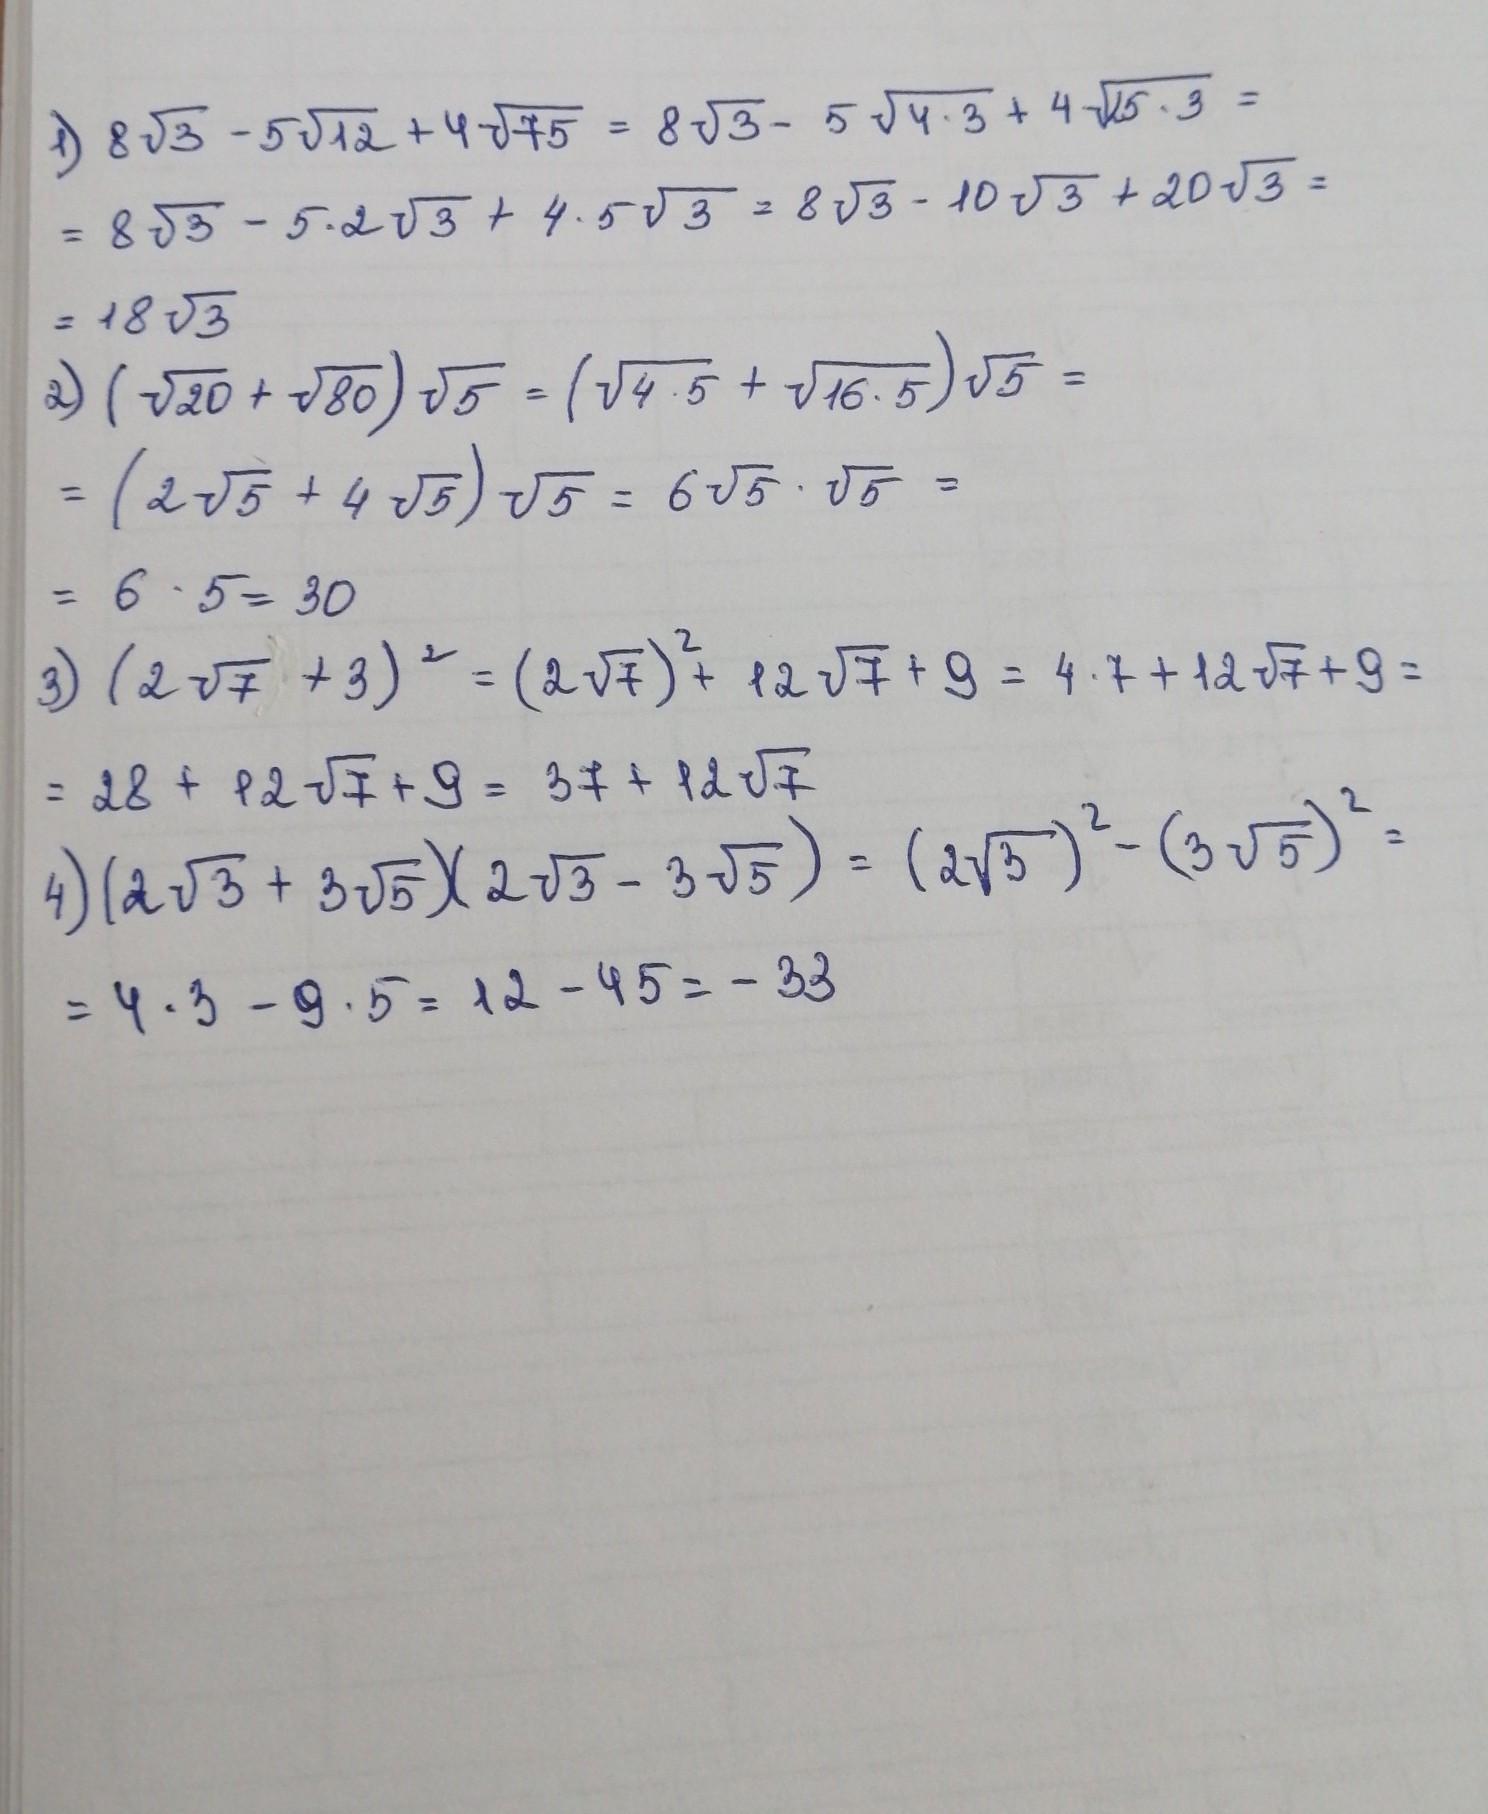 1) 8√3 - 5√12 + 4√75 = 8√3 - 5√4·3 + 4√25·3 =
= 8√3 - 5·2√3 + 4·5√3 = 8√3 - 10√3 + 20√3 =
= 18√3
2) (√20 + √80)√5 = (√4·5 + √16·5)√5 =
= (2√5 + 4√5)√5 = 6√5 · √5 =
= 6 · 5 = 30
3) (2√7 + 3)² = (2√7)² + 12√7 + 9 = 4·7 + 12√7 + 9 =
= 28 + 12√7 + 9 = 37 + 12√7
4) (2√3 + 3√5)(2√3 - 3√5) = (2√3)² - (3√5)² =
= 4·3 - 9·5 = 12 - 45 = - 33